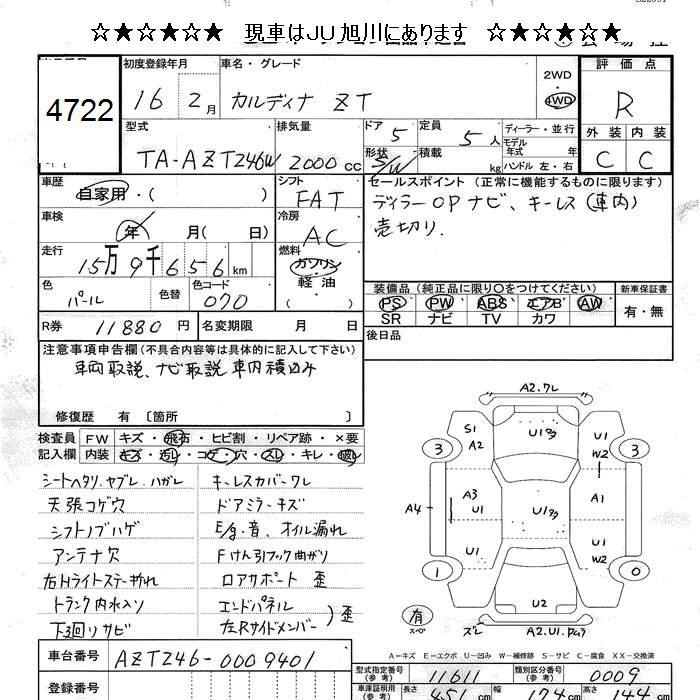 ☆★☆★☆★ 現車はJU旭川にあります ☆★☆★☆★
4722
初度登録年月
16 2月
車名・グレード
カルディナ ZT
2WD
4WD
評価点
R
外装 内装
C C
型式
TA-AZT246W
排気量
2000cc
ドア 5
定員 5人
形状 S/W
積載 kg
ディーラー・並行
モデル年式 年
ハンドル 左・右
車歴
自家用・( )
シフト
FAT
車検
年 月( 日)
冷房
AC
走行
15万9千656km
燃料
ガソリン
軽油
( )
色
パール
色替
色コード
070
R券 11880円
名変期限 月 日
セールスポイント (正常に機能するものに限ります)
ディラーOPナビ、キーレス(車内)
売切り.
装備品 (純正品に限り○をつけてください)
PS PW ABS エアB AW
SR ナビ TV カワ
新車保証書
有・無
後日品
注意事項申告欄 (不具合内容等は具体的に記入して下さい)
車両取説、ナビ取説車内積込み
修復歴 有 〔箇所 〕
検査員記入欄
FW キズ・飛石・ヒビ割・リペア跡・×要
内装 キズ・汚レ・コゲ・穴・スレ・キレ・破レ
シートヘタリ.ヤブレ.ハガレ
天張コゲ穴
シフトノブハゲ
アンテナ欠
右Hライトステー折れ
トランク内水入り
下廻リサビ
キーレスカバーワレ
ドアミラーキズ
E/g.音、オイル漏れ
Fけん引フック曲がり
ロアサポート 歪
エンドパネル
左Rサイドメンバー ) 歪
A2.ワレ
S1
A2
U1多
U1
W2
3
3
A4
A3
U1
U1多
A1
U1
U1
W2
1
0
U2
有
スペア
ズレ
A2.U1.
A=キズ E=エクボ U=凹み W=補修跡 S=サビ C=腐食 XX=交換済
車台番号
AZT246-0009401
登録番号
型式指定番号
(参考)
11611
類別区分番号
(参考)
0009
車庫証明用
(参考)
長さ 451cm
幅 174cm
高さ 144cm